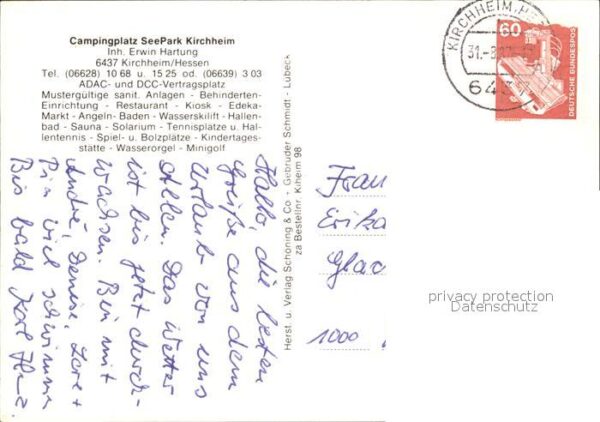 Campingplatz SeePark Kirchheim
Inh. Erwin Hartung
6437 Kirchheim/Hessen
Tel. (06628) 10 68 u. 15 25 od. (06639) 3 03
ADAC- und DCC-Vertragsplatz
Mustergültige sanit. Anlagen - Behinderten-
Einrichtung - Restaurant - Kiosk - Edeka-
Markt - Angeln - Baden - Wasserskilift - Hallen-
bad - Sauna - Solarium - Tennisplätze u. Hal-
lentennis - Spiel- u. Bolzplätze - Kindertages-
stätte - Wasserorgel - Minigolf
Hallo, die besten
Grüße aus dem
Urlaub von uns
Allen. Das Wetter
ist bis jetzt durch-
wachsen. Bin mit
André, Denise,
viel schwimmen
Bis bald Karl
Herst. u. Verlag Schöning & Co - Gebrüder Schmidt - Lübeck
zu Bestellnr. Kiheim 98
KIRCHHEIM, H
31.-8
6437
60
DEUTSCHE BUNDESPOST
Frau
Erika
Glac
1000
privacy protection
Datenschutz